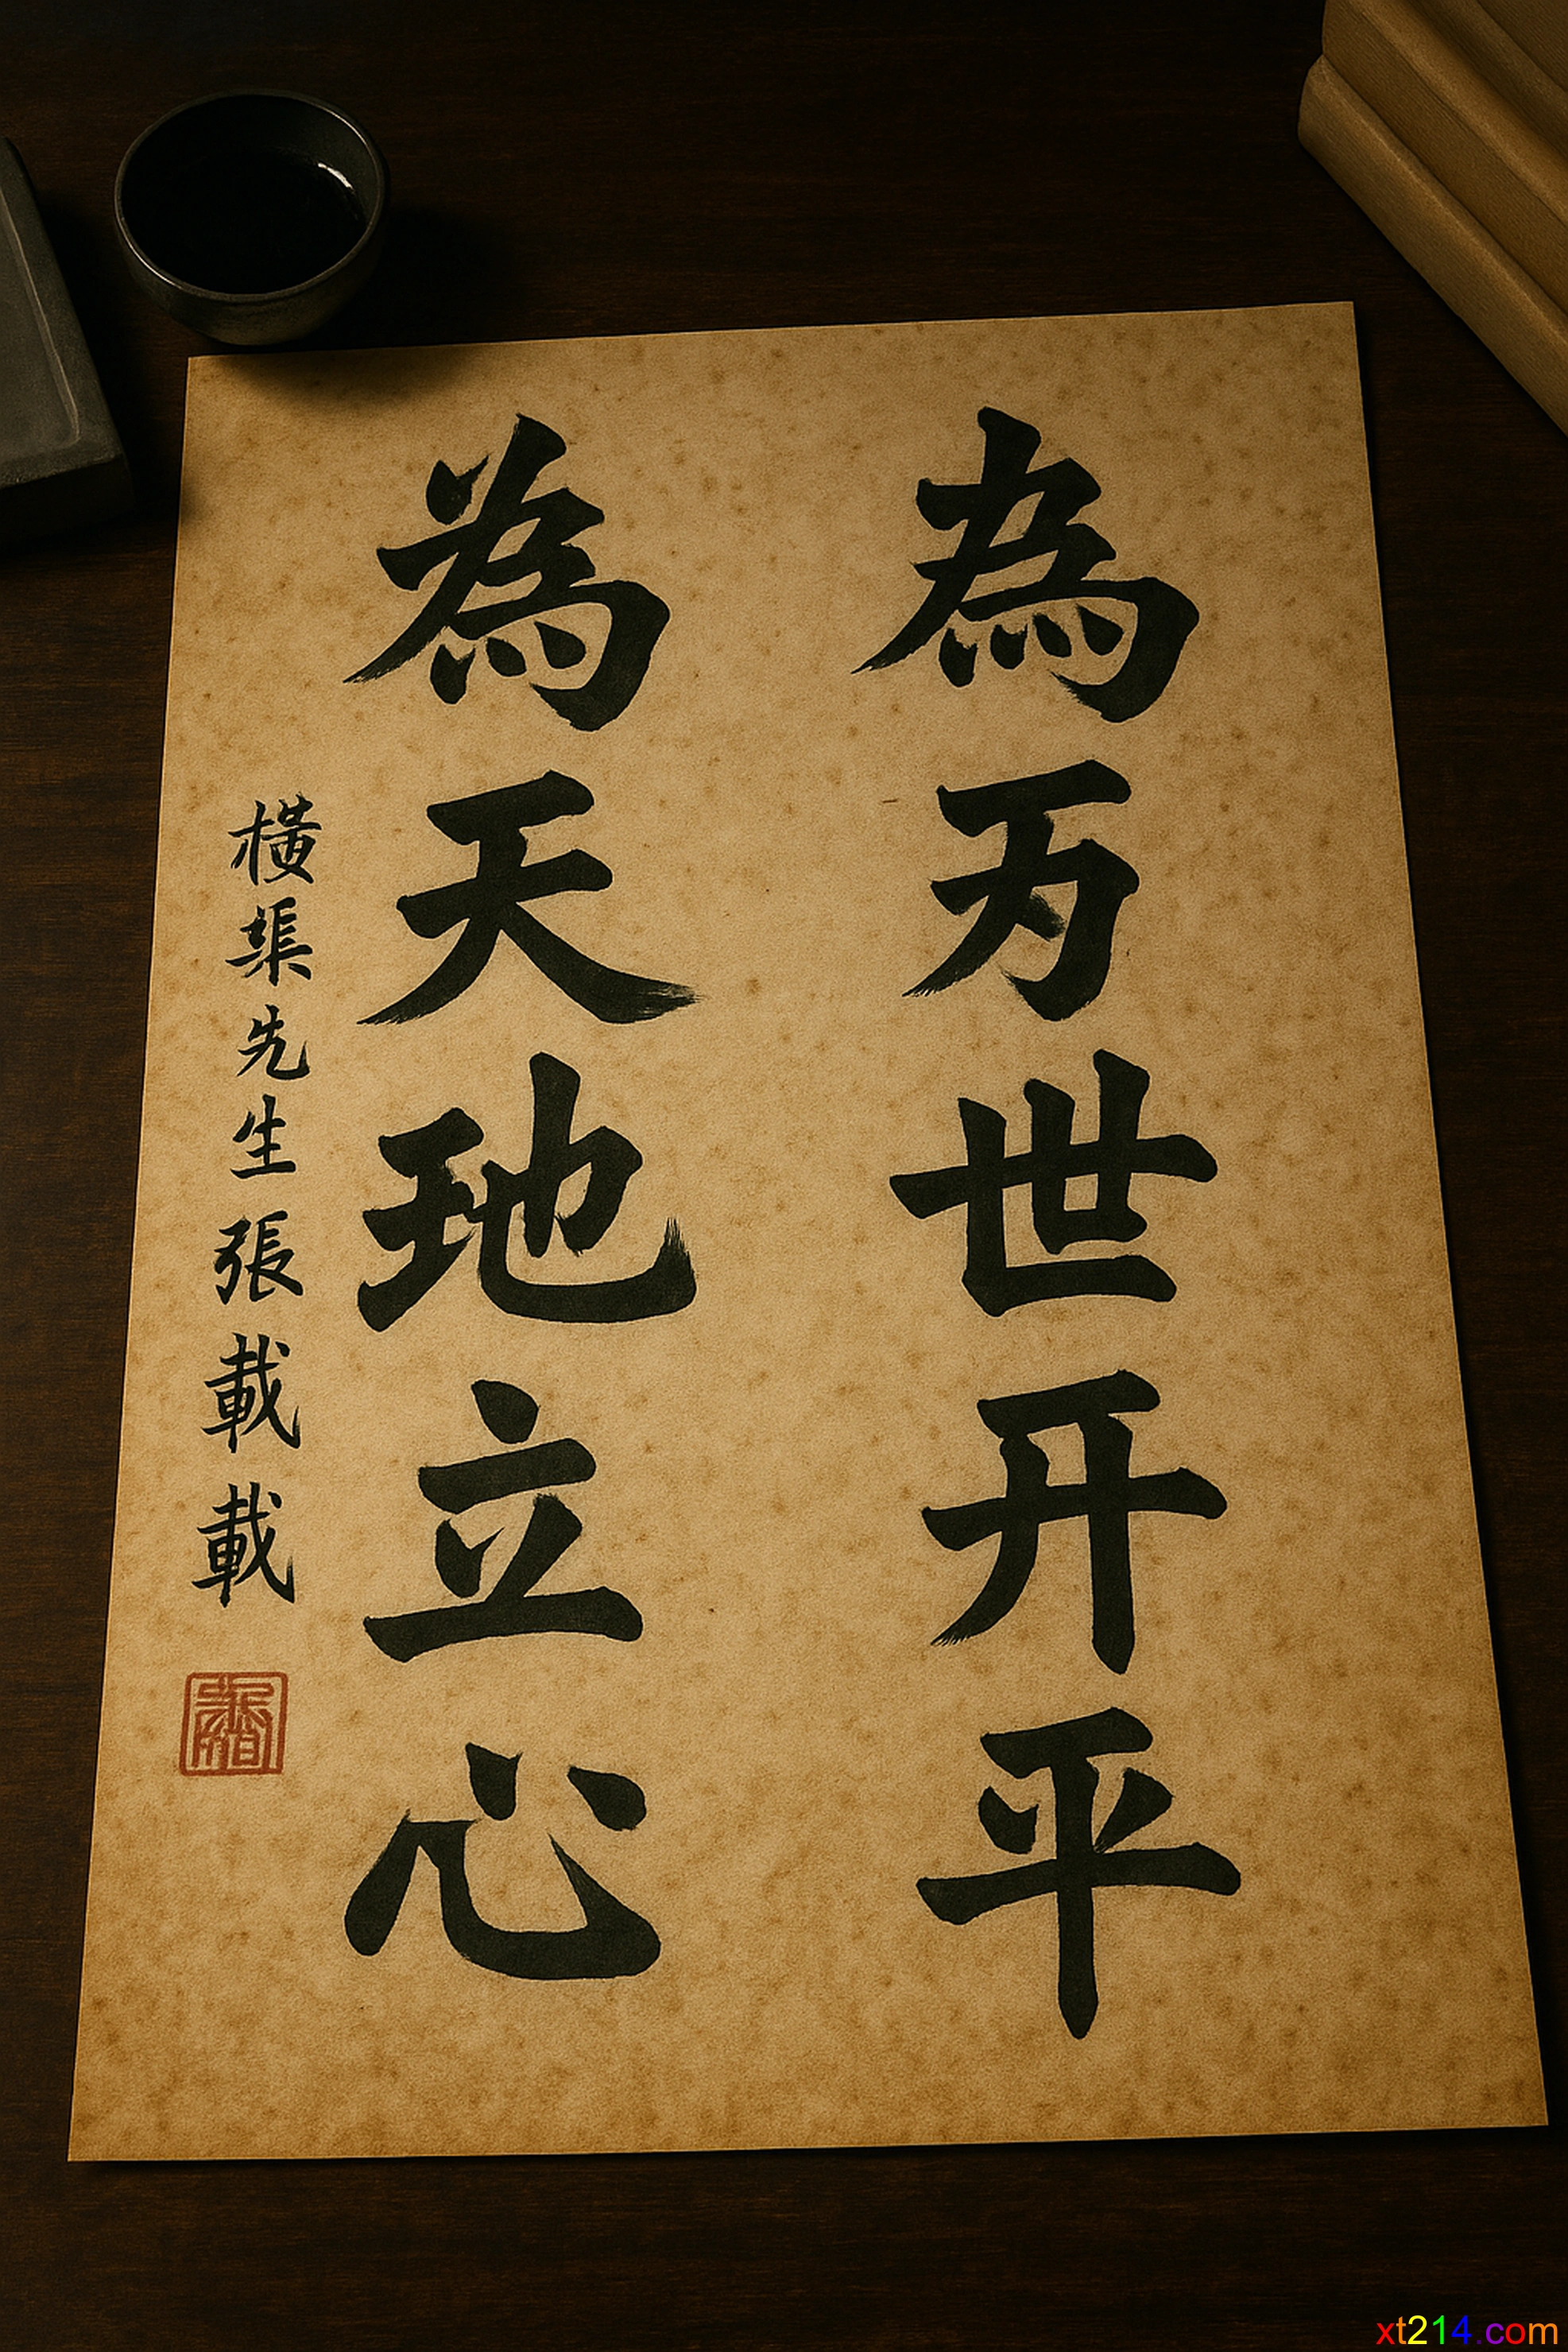 為万世开平
為天地立心
橫渠先生張載載
xt214.com